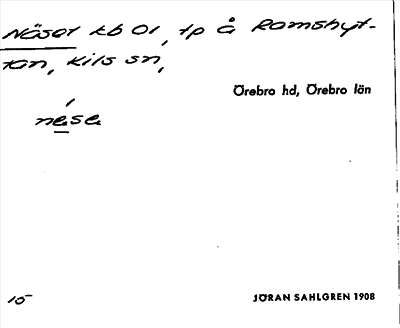 Näset kb Ol, tp å Ramshyt-
tan, Kils sn,
Örebro hd, Örebro län
nesa
15
JÖRAN SAHLGREN 1908